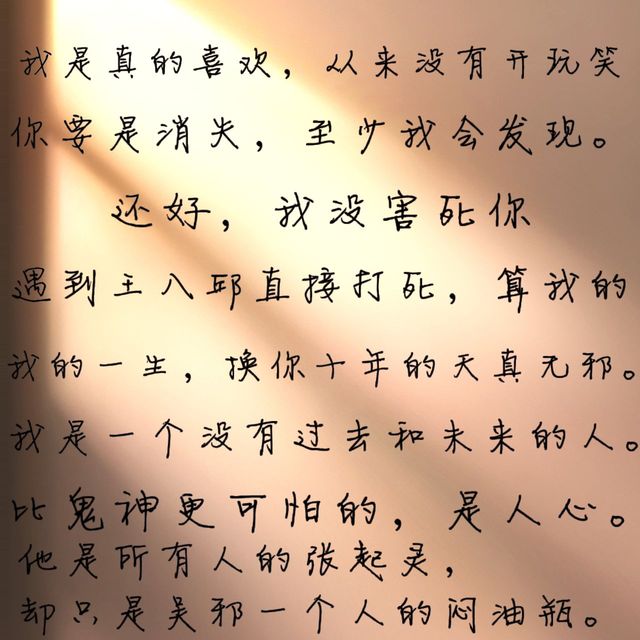 我是真的喜欢，从来没有开玩笑
你要是消失，至少我会发现。
还好，我没害死你
遇到王八邱直接打死，算我的
我的一生，换你十年的天真无邪。
我是一个没有过去和未来的人。
比鬼神更可怕的，是人心。
他是所有人的张起灵，
却只是吴邪一个人的闷油瓶。